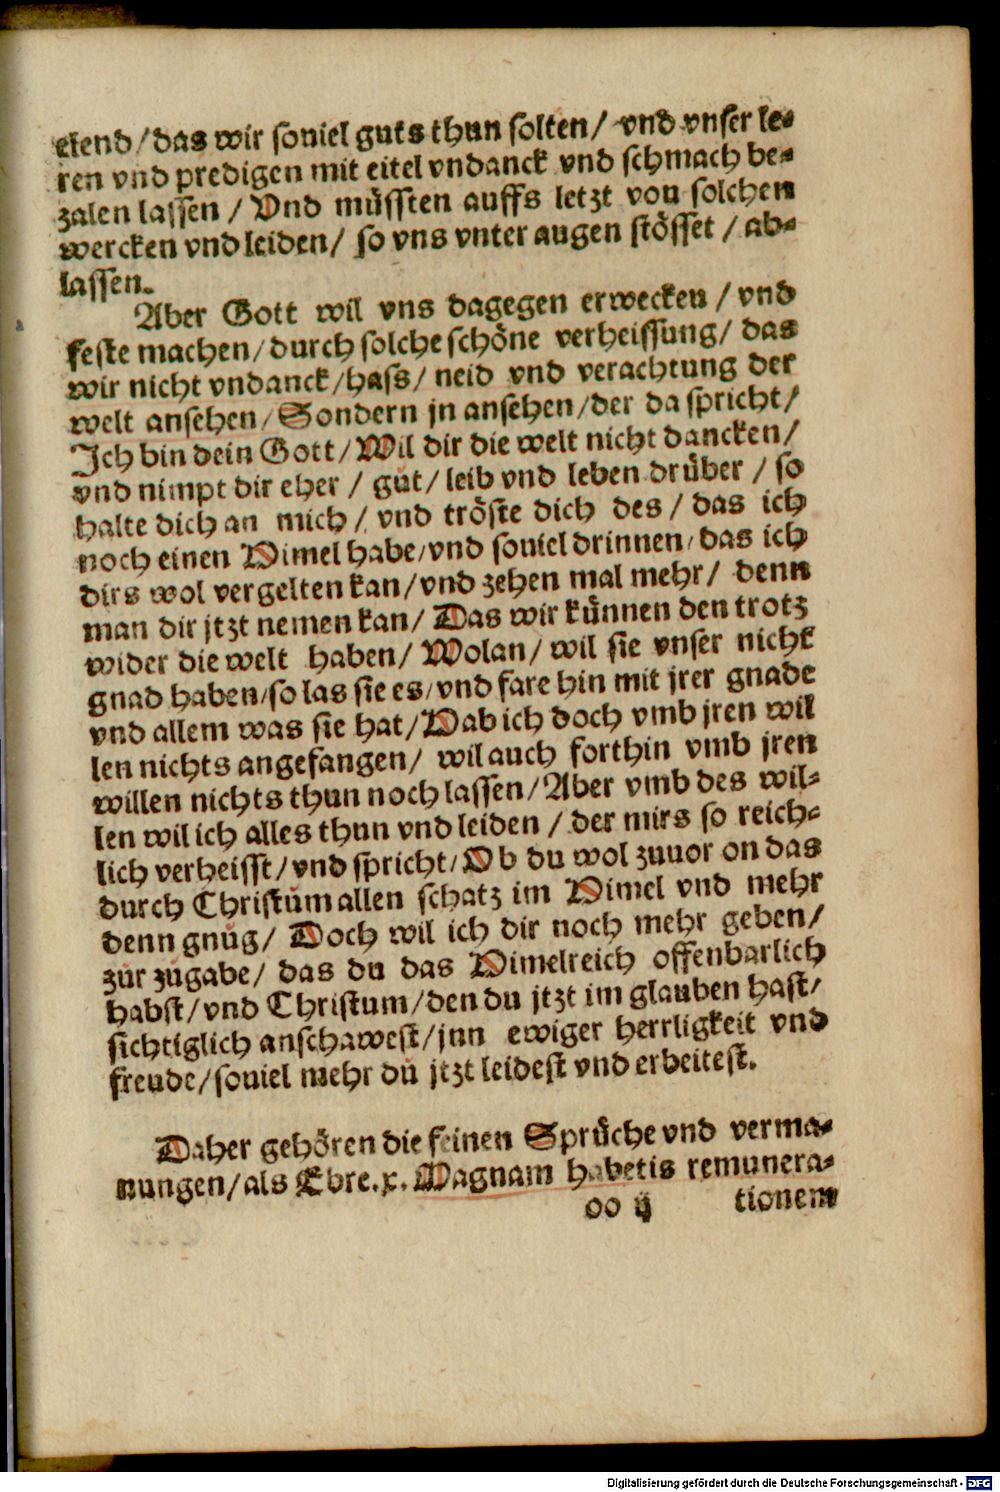 elend/das wir souiel guts thun solten/ vnd vnser le⸗
ren vnd predigen mit eitel vndanck vnd schmach be⸗
zalen lassen / Vnd müssten auffs letzt von solchen
wercken vnd leiden/ so vns vnter augen stösset / ab⸗
lassen.
Aber Gott wil vns dagegen erwecken / vnd
feste machen/durch solche schöne verheissung/ das
wir nicht vndanck/hass/ neid vnd verachtung der
welt ansehen/Sondern jn ansehen/der da spricht/
Ich bin dein Gott/Wil dir die welt nicht dancken/
vnd nimpt dir eher / gut/ leib vnd leben drüber / so
halte dich an mich/ vnd tröste dich des/ das ich
noch einen Himel habe/vnd souiel drinnen/das ich
dirs wol vergelten kan/vnd zehen mal mehr/ denn
man dir jtzt nemen kan/ Das wir künnen den trotz
wider die welt haben/ Wolan/ wil sie vnser nicht
gnad haben/so las sie es/vnd fare hin mit jrer gnade
vnd allem was sie hat/Hab ich doch vmb jren wil
len nichts angefangen/ wil auch forthin vmb jren
willen nichts thun noch lassen/Aber vmb des wil⸗
len wil ich alles thun vnd leiden / der mirs so reich⸗
lich verheisst/vnd spricht/Ob du wol zuuor on das
durch Christum allen schatz im Himel vnd mehr
denn gnůg/ Doch wil ich dir noch mehr geben/
zur zůgabe/ das du das Himelreich offenbarlich
habst/vnd Christum/den du jtzt im glauben hast/
sichtiglich anschawest/jnn ewiger herrligkeit vnd
freude/souiel mehr du jtzt leidest vnd erbeitest.
Daher gehören die feinen Sprüche vnd verma⸗
nungen/als Ebre.x. Magnam habetis remunera⸗
oo ij tionem
Digitalisierung gefördert durch die Deutsche Forschungsgemeinschaft - DFG